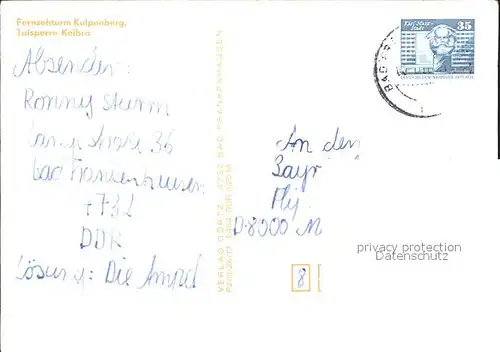 Fernsehturm Kulpenberg,
Talsperre Kelbra
Absender:
Ronny Sturm
Straße 36
Bad Frankenhausen
4732
DDR
Lösung: Die Ampel
VERLAG GÖRTZ, 4732 BAD FRANKENHAUSEN
Karl-Marx-
Stadt
35
BAD FR
An den
Bayr
D-8000 M
privacy protection
Datenschutz
8